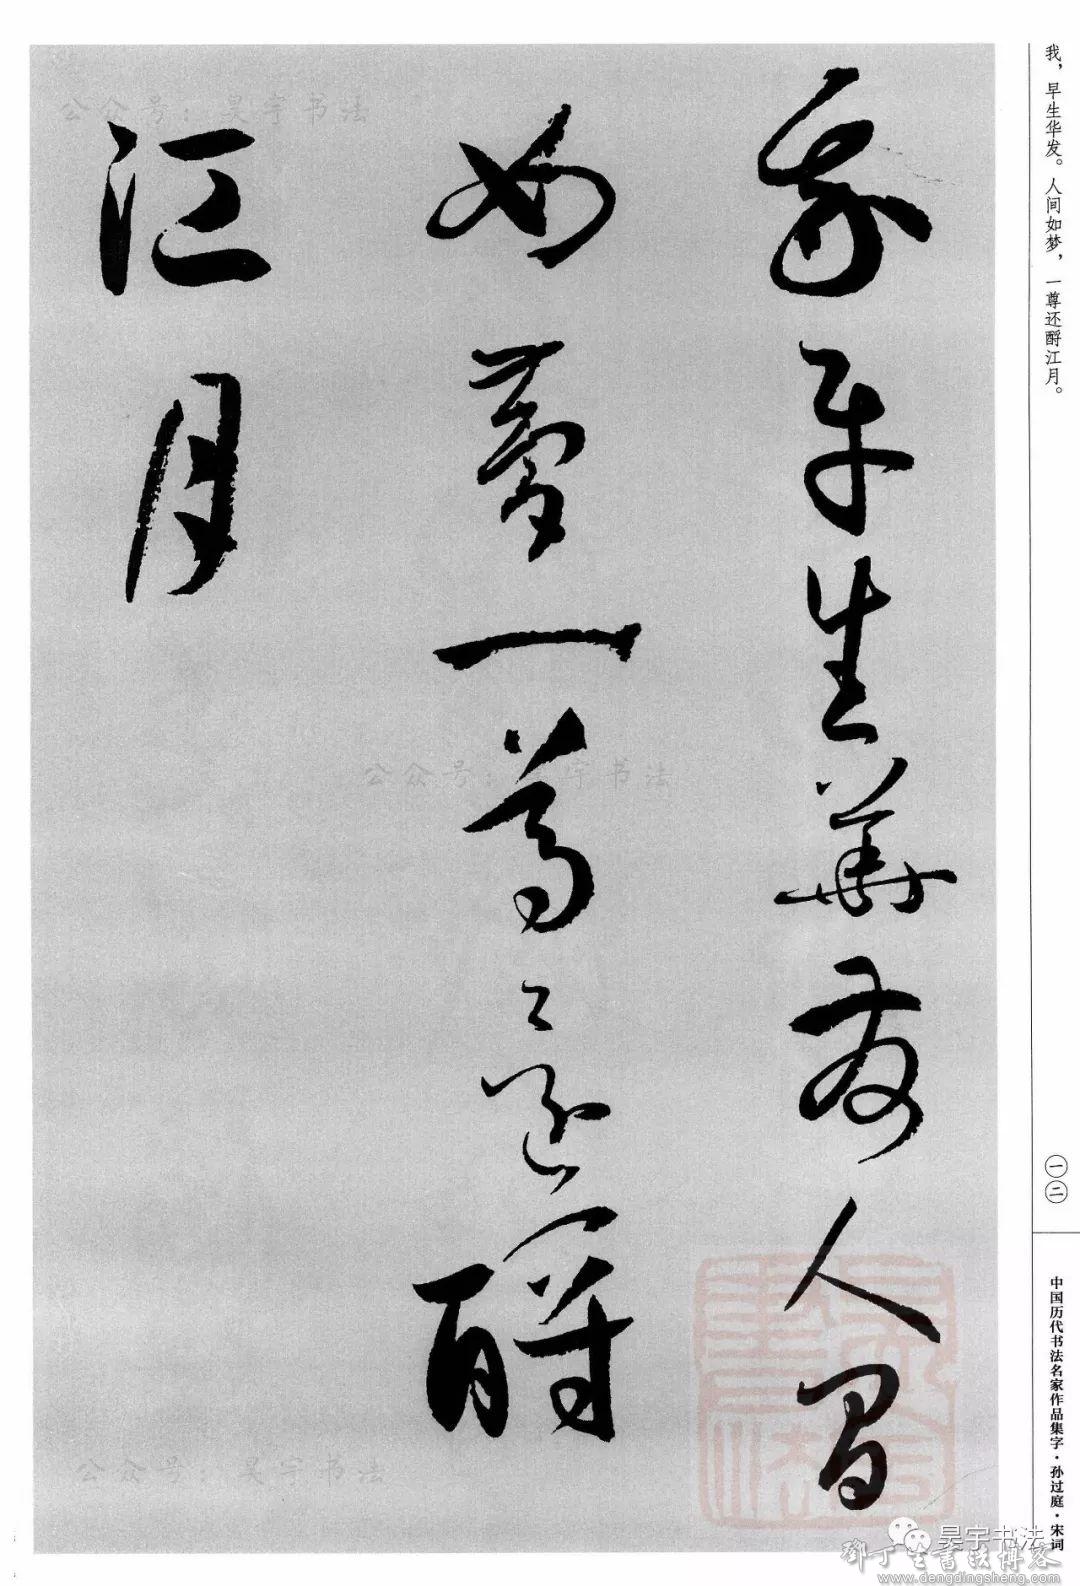 我早生華發人間
如夢一尊還酹
江月
我，早生华发。人间如梦，一尊还酹江月。
一二
中国历代书法名家作品集字·孙过庭·宋词
公众号：昊宇书法
公众号：昊宇书法
公众号：昊宇书法
昊宇书法
鄧丁生書法博客
www.dengdingsheng.com